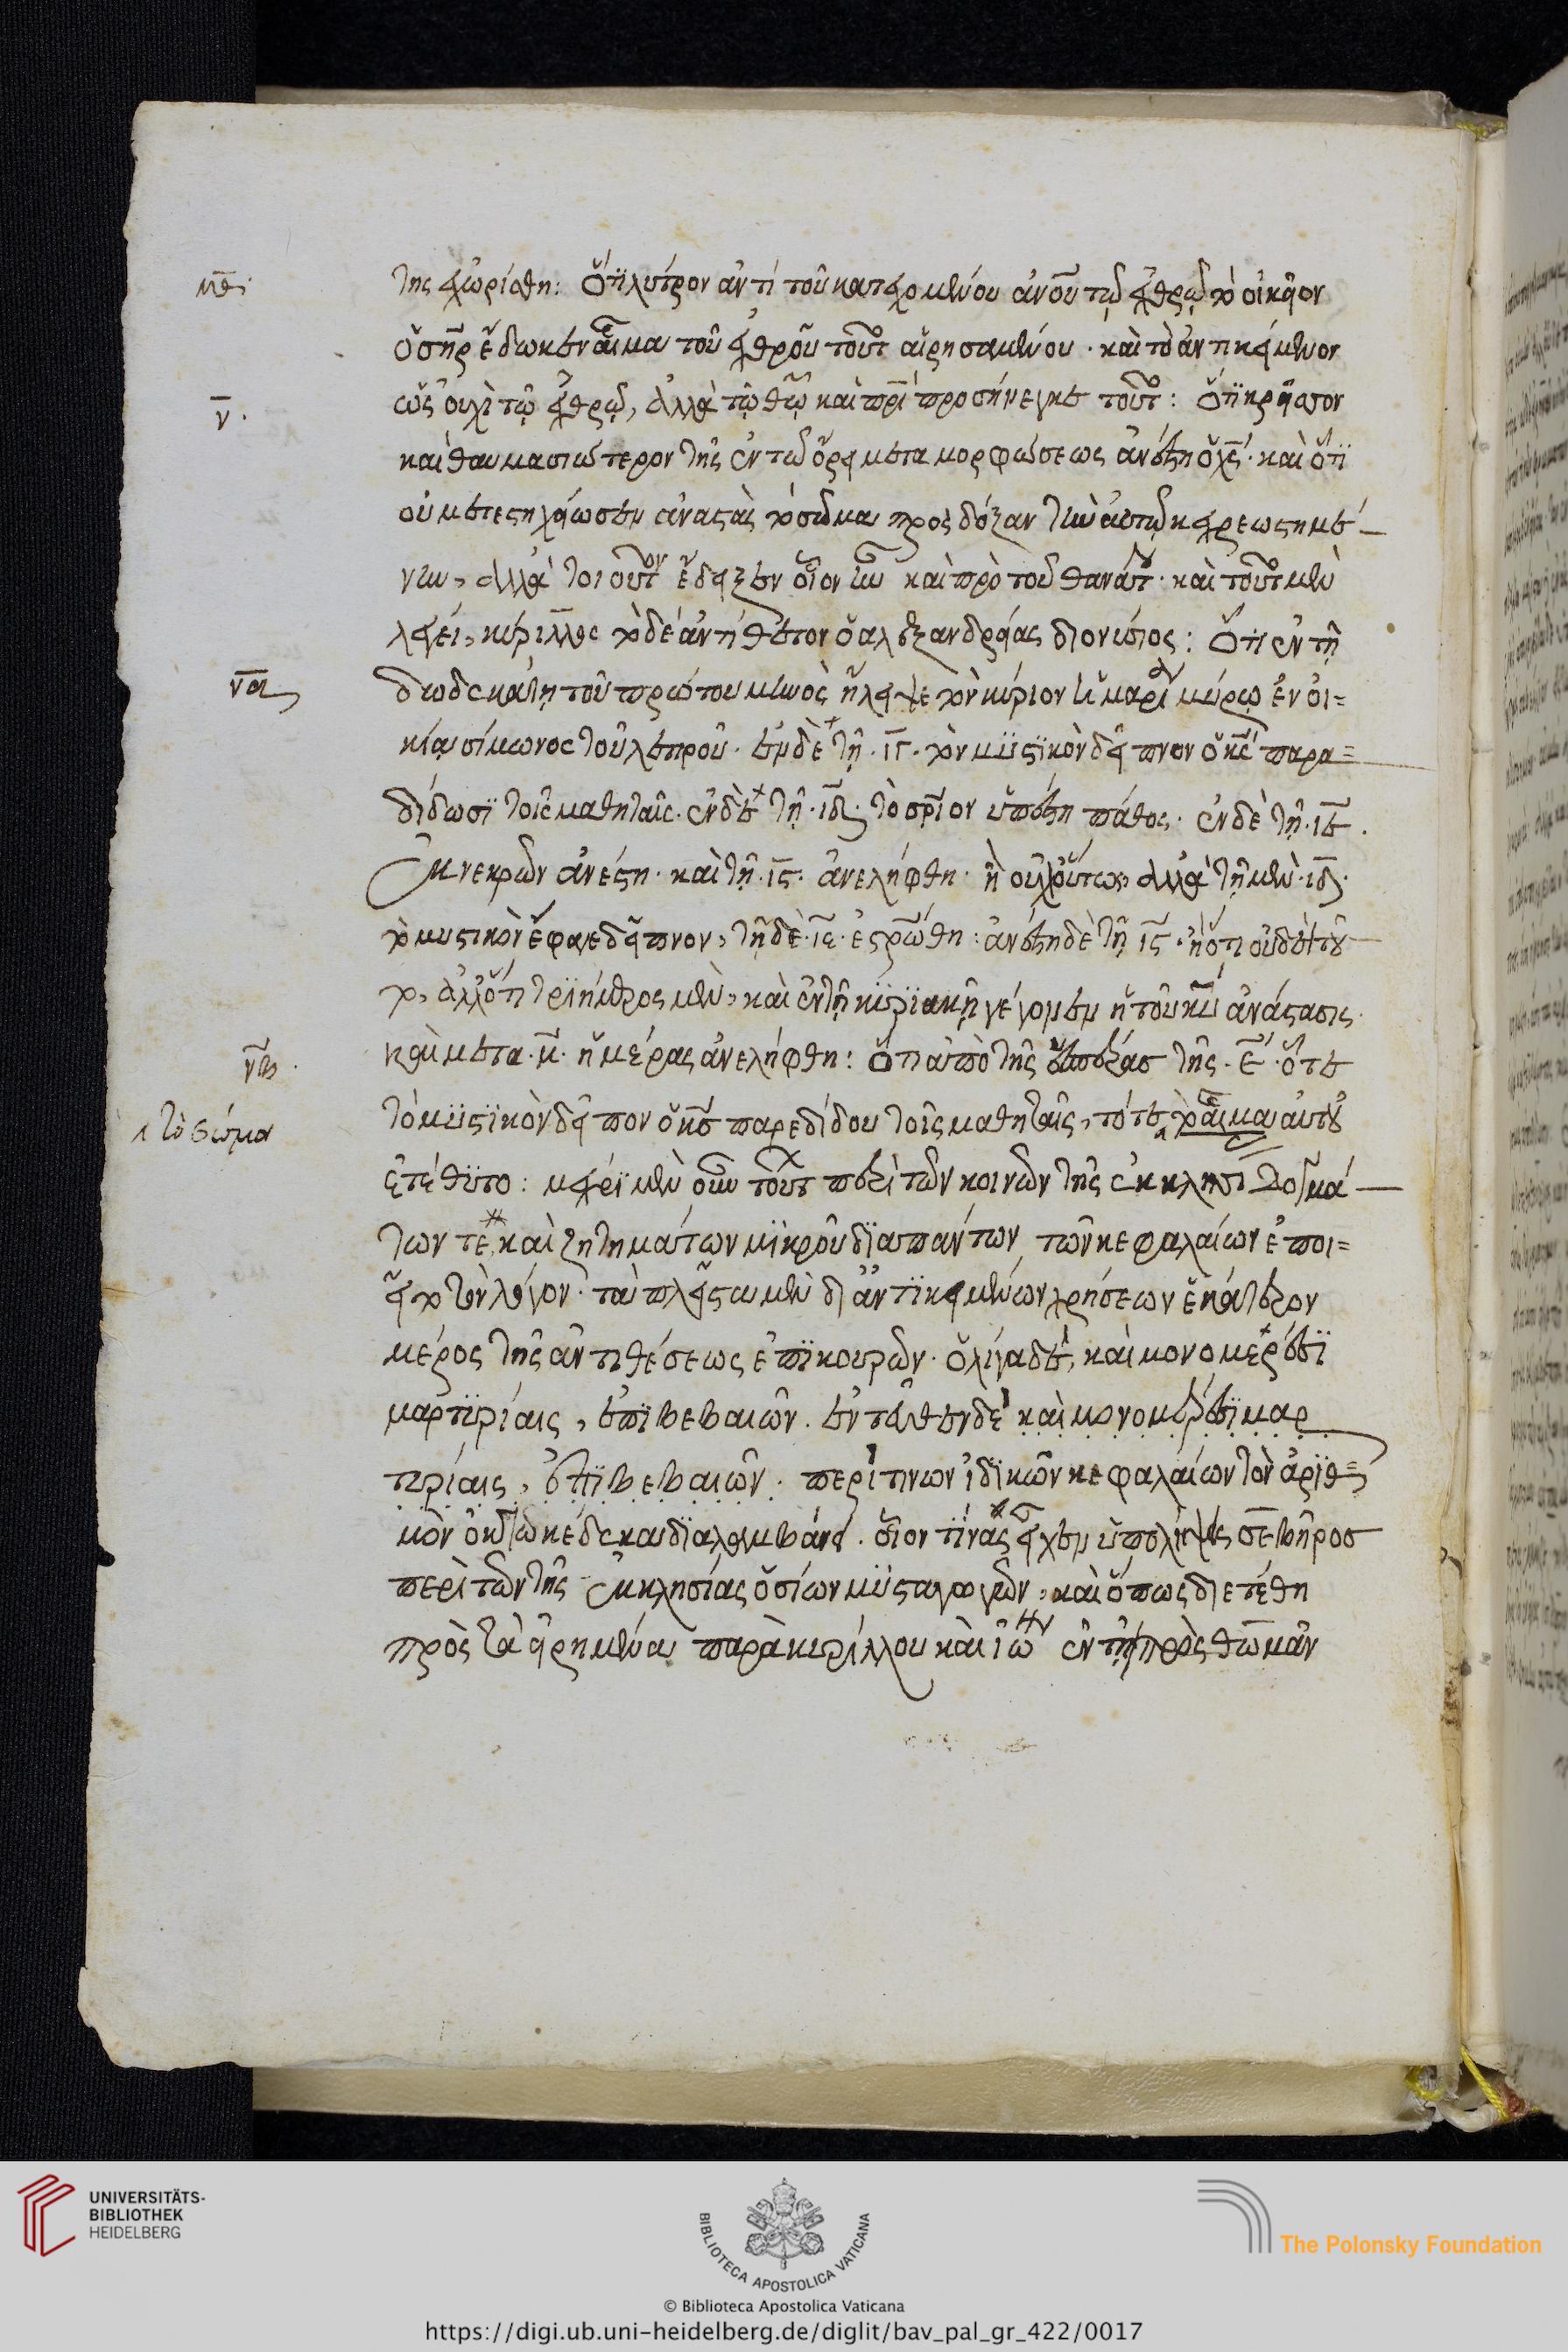 μθ.
της ἐχωρίσθη: ὅτι λύτρον ἀντὶ τοῦ κατεχομένου ἀνου τῷ ἐχθρῷ τὸ οἰκεῖον
ὁ σηρ ἔδωκεν αἷμα τοῦ ἐχθροῦ τοῦτ αἱρησαμένου · καὶ τὸ ἀντικείμενον
ν.
ὡς οὐχὶ τῷ ἐχθρῷ, ἀλλὰ τῷ θῶ καὶ πρι προσήνεγκε τοῦτ: ὅτι κρεῖσσον
καὶ θαυμασιώτερον τῆς ἐν τῶ ὄρει μεταμορφώσεως ἀνέστη ὁ χς · καὶ ὅτι
οὐ μετεστηχείωσεν ἀναστὰς τὸ σῶμα πρὸς δόξαν τὴν αὐτῷ κρεωστημέ
νην, ἀλλὰ τοιοῦτον ἔδειξεν οἷον ἦν καὶ πρὸ τοῦ θανάτ · καὶ τοῦτ μὲν
λέγει, κύριλλος τὸ δὲ ἀντίθετον ὁ ἀλεξανδρείας διονύσιος: ὅτι ἐν τῇ
να
δωδεκάτῃ τοῦ πρώτου μηνὸς ἤλειψε τὸν κύριον ἡ μαρὶ μύρῳ ἐν οἰ=
κίᾳ σίμωνος τοῦ λεπροῦ · ἐν δὲ τῇ · ιγ · τὸν μυστικὸν δεῖπνον ὁ κς παρα=
δίδωσι τοῖς μαθηταῖς · ἐν δὲ τῇ · ιδ · τὸ σριον ὑπέστη πάθος · ἐν δὲ τῇ · ιε ·
ἐκ νεκρῶν ἀνέστη · καὶ τῇ · ις · ἀνελήφθη · ἢ οὐχ οὕτως, ἀλλὰ τῇ μὲν · ιδ ·
τὸ μυστικὸν ἔφαγε δεῖπνον, τῇ δὲ · ιε · ἐσρώθη: ἀνέστη δὲ τῇ ις · ἢ ὅτι οὐδὲ τοῦ
το, ἀλλ' ὅτι τριήμερος μὲν, καὶ ἐν τῇ κυριακῇ γέγονεν ἡ τοῦ κυ ἀνάστασις ·
νβ.
καὶ μετα · μ · ἡμέρας ἀνελήφθη: ὅτι ἀπὸ τῆς ἑσπέρας τῆς · ε · ὅτε
τὸ μυστικὸν δεῖπον ὁ κς παρεδίδου τοῖς μαθηταῖς, τότε τὸ αἷμα αὐτοῦ
τὸ σῶμα
ἐτέθυτο: μέχρι μὲν οὖν τοῦτ περὶ τῶν κοινῶν τῆς ἐκκλησι δογμά
των τε καὶ ζητημάτων μικροῦ διαπάντων τῶν κεφαλαίων ἐποι=
εῖτο τὸν λόγον · τὰ πλεῖστα μὲν δι ἀντικειμένων χρήσεων ἑκάτερον
μέρος τῆς ἀντιθέσεως ἐπικουρῶν · ὀλίγα δὲ, καὶ μονομερέσι
μαρτυρίαις, ἐπιβεβαιῶν · ἐντεῦθεν δὲ καὶ μονομερέσι μαρ
τυρίαις, ἐπιβεβαιῶν · περὶ τινων ἰδικῶν κεφαλαίων τὸν ἀριθ=
μὸν ὀκτωκαίδεκα διαλαμβάνει · οἷον τίνας εἶχεν ὑπολήψεις σεβῆρος
περὶ τῶν τῆς ἐκκλησίας ὁσίων μυσταγωγῶν, καὶ ὅπως διετέθη
πρὸς τὰ εἰρημένα παρὰ κυρίλλου καὶ ἰω ἐν τῇ πρὸς θωμᾶν
UNIVERSITÄTS-
BIBLIOTHEK
HEIDELBERG
BIBLIOTECA APOSTOLICA VATICANA
The Polonsky Foundation
© Biblioteca Apostolica Vaticana
https://digi.ub.uni-heidelberg.de/diglit/bav_pal_gr_422/0017